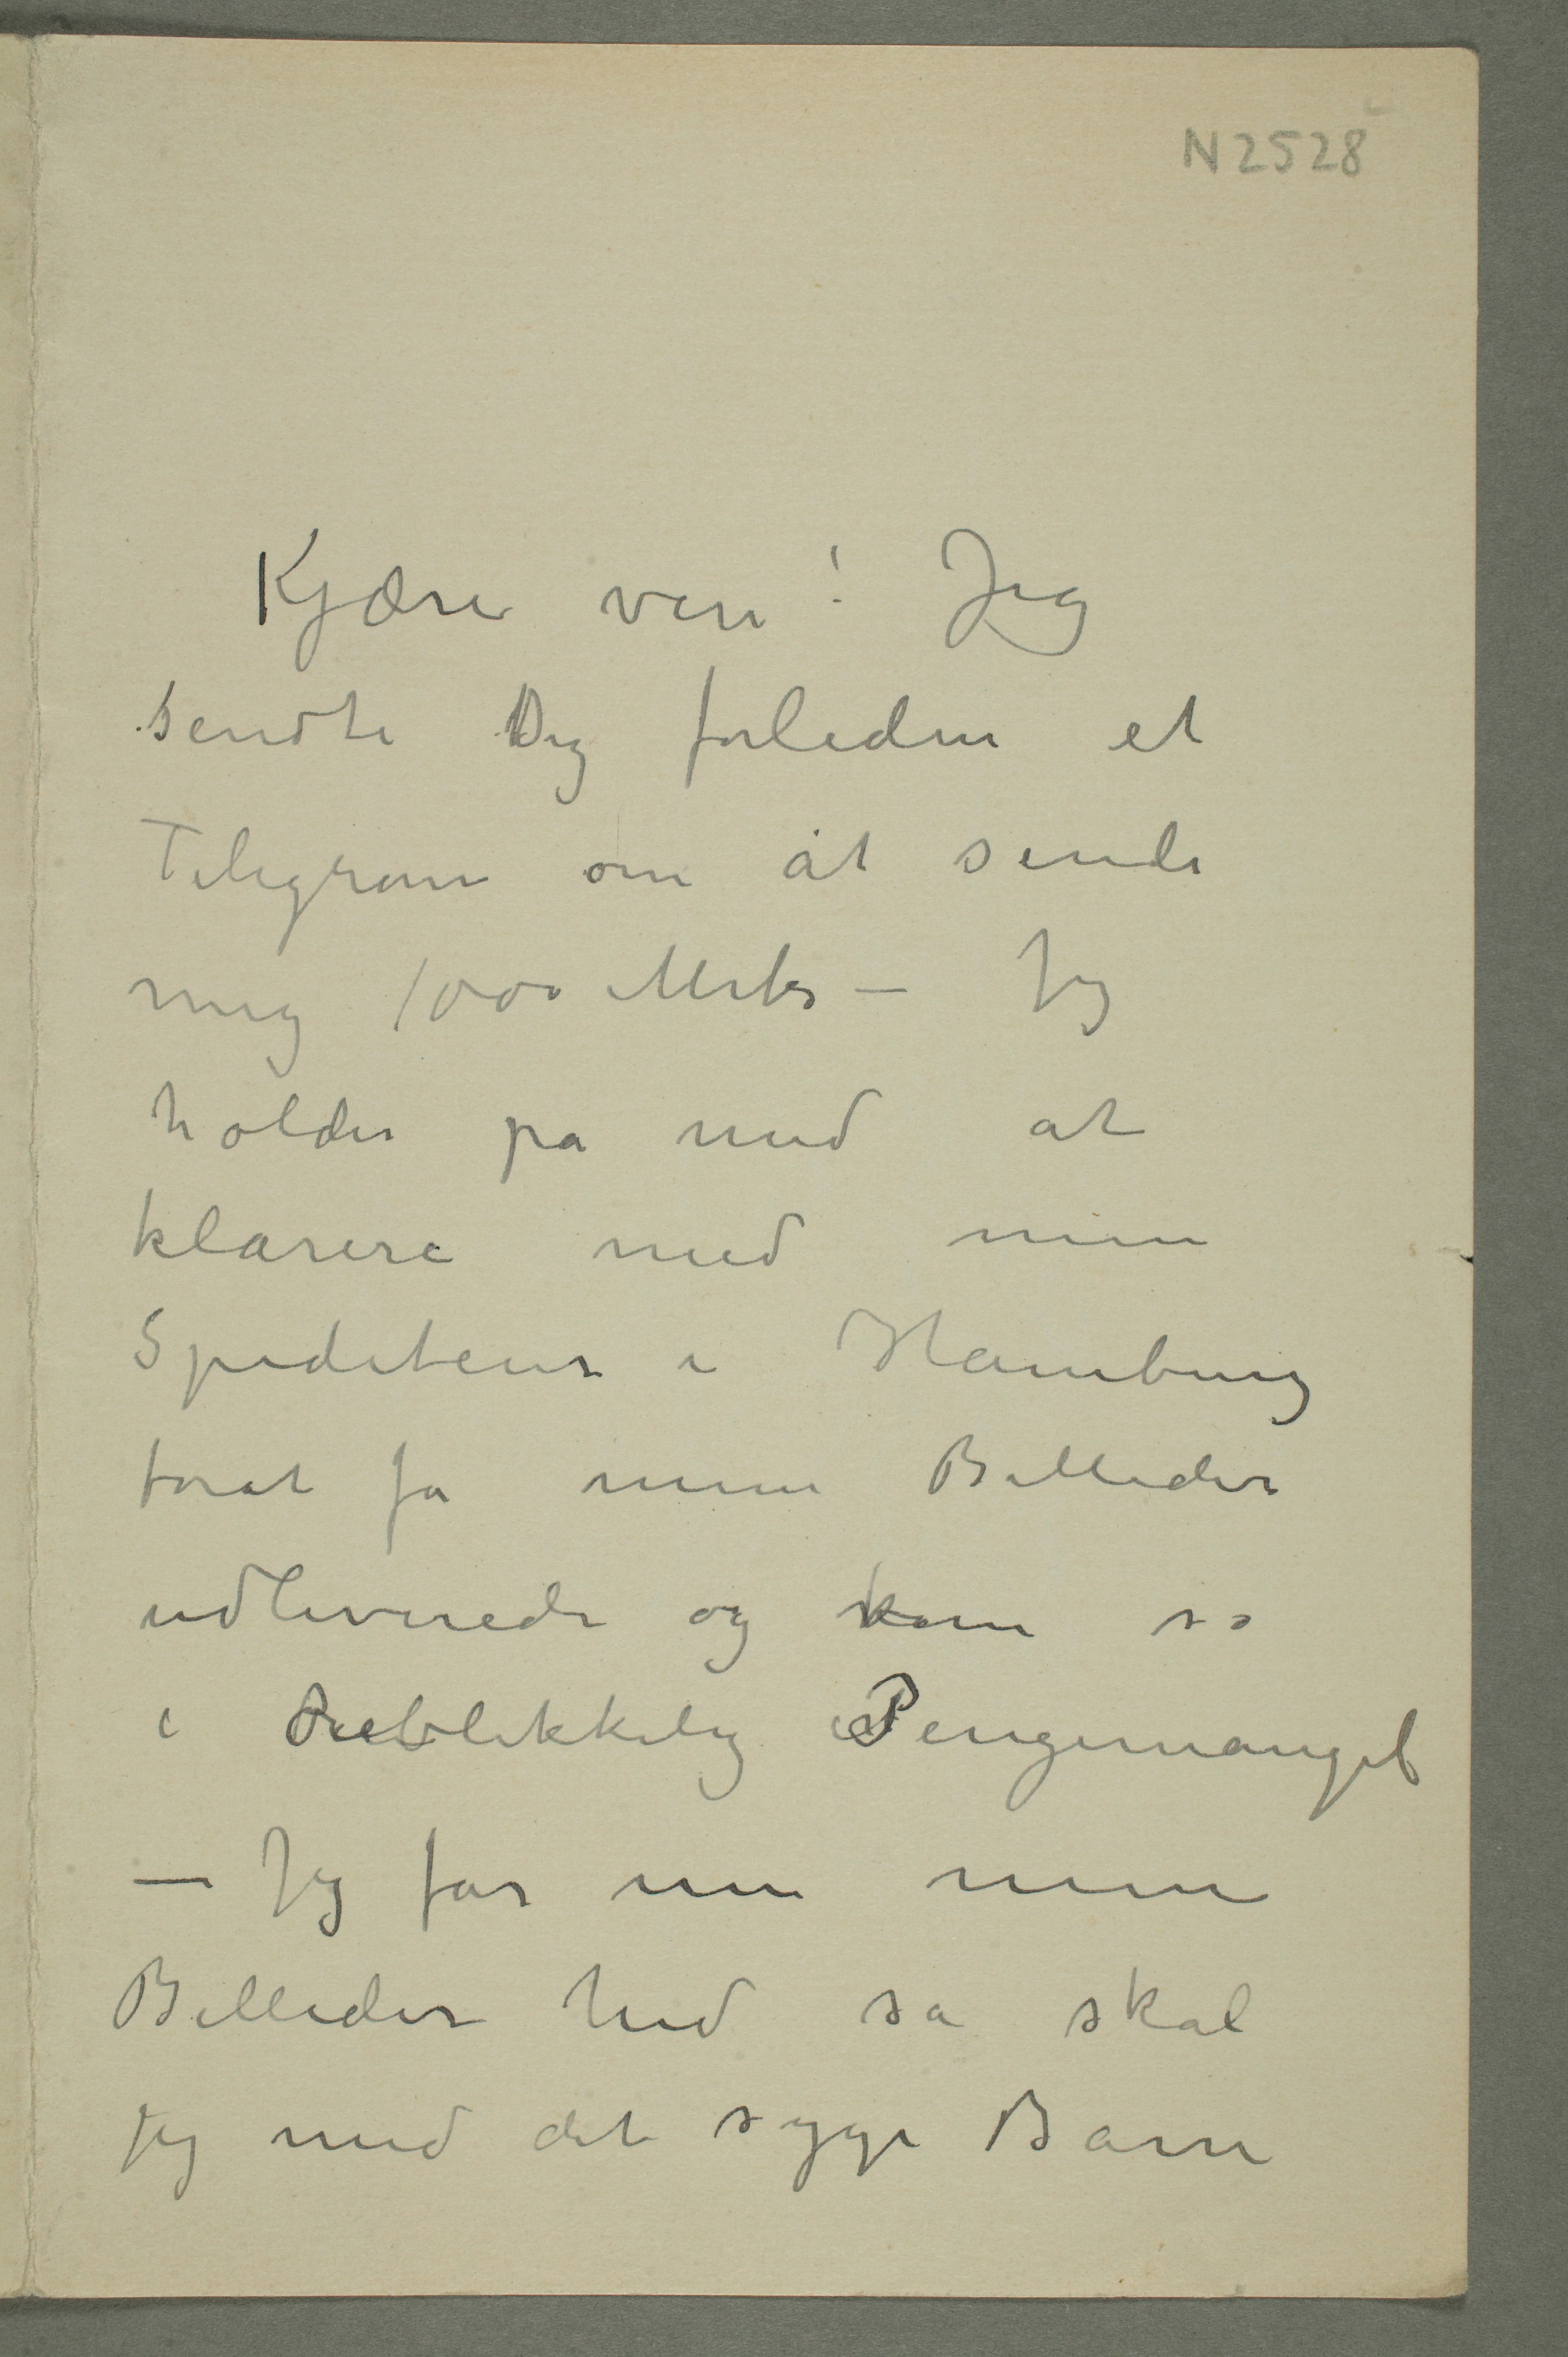 N 2528
Kjære ven! Jeg
sendte Dig forleden et
Telegram om at sende
mig 1000 Mrks – Jeg
holder pa med at
klarere med min
Spediteur i Hamburg
forat fa mine Billeder
udleverede og kom sa
i øieblikkelig Pengemangel
– Jeg far nu mine
Billeder hid sa skal
jeg med det syge Barn